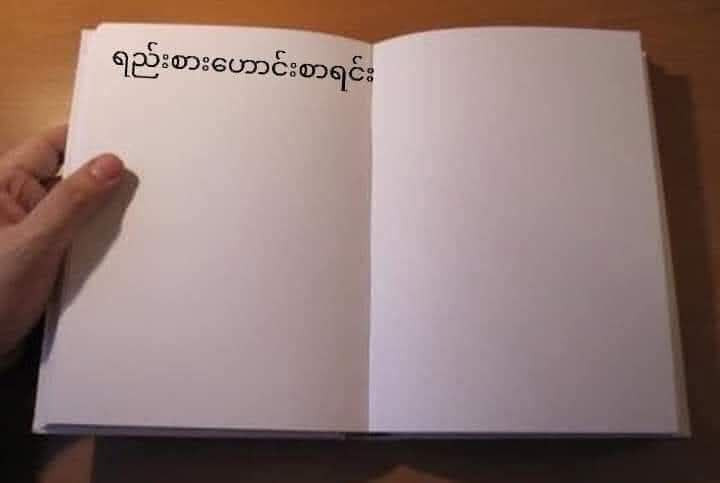 ရည်းစားဟောင်းစာရင်း